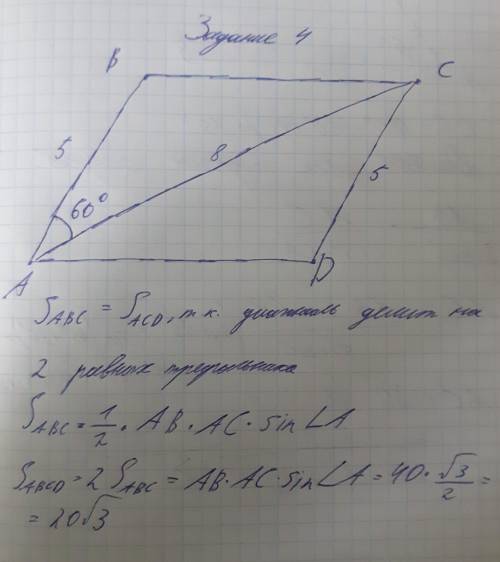 Задание 4
B
C
5
8
5
60°
A
D
S_ABC = S_ACD, т.к. диагональ делит на
2 равных треугольника
S_ABC = 1/2 · AB · AC · sin∠A
S_ABCD = 2 S_ABC = AB · AC · sin∠A = 40 · √3/2 =
= 20√3